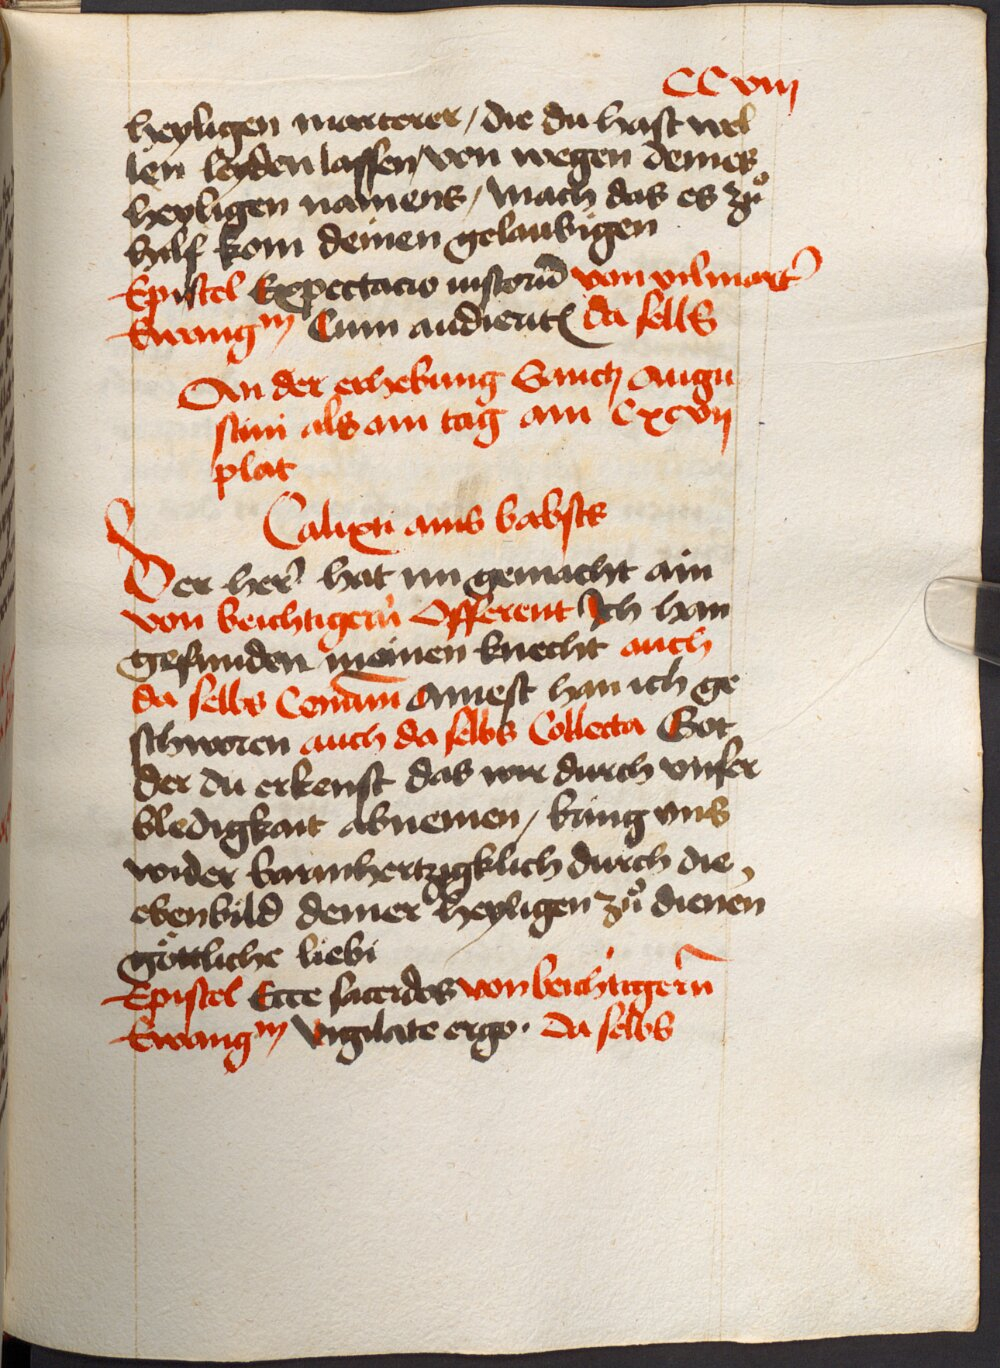 CC viij
heyligen marterer / die du hast wel
len leyden lassen / von wegen deines
heyligen namens / mach das es zů
hilf kom deinen gelaubigen
Epistel Expectacio iustorū von vil mart᷑
Ewangm Cum audierit(is) da selbs
An der erhebung Sanctj Augu
stini als am tag am Cxcvij
plat
Calixti ains babsts
Der her᷑ hat im gemacht ain
von beichtigern̄ Offerent Ich han
gefunden meinen knecht auch
da selbs Comūm Ainest han ich ge
schworen auch da selbs Collecta Got
der du erkenst das wir durch vnser
bledigkait abnemen / bring vns
wider barmhertzigklich durch die
ebenbild deiner heyligen zů dienen
göttliche liebi
Epistel Ecce sacerdos von beichtigern̄
Ewangm Vigilate ergo · da selbs